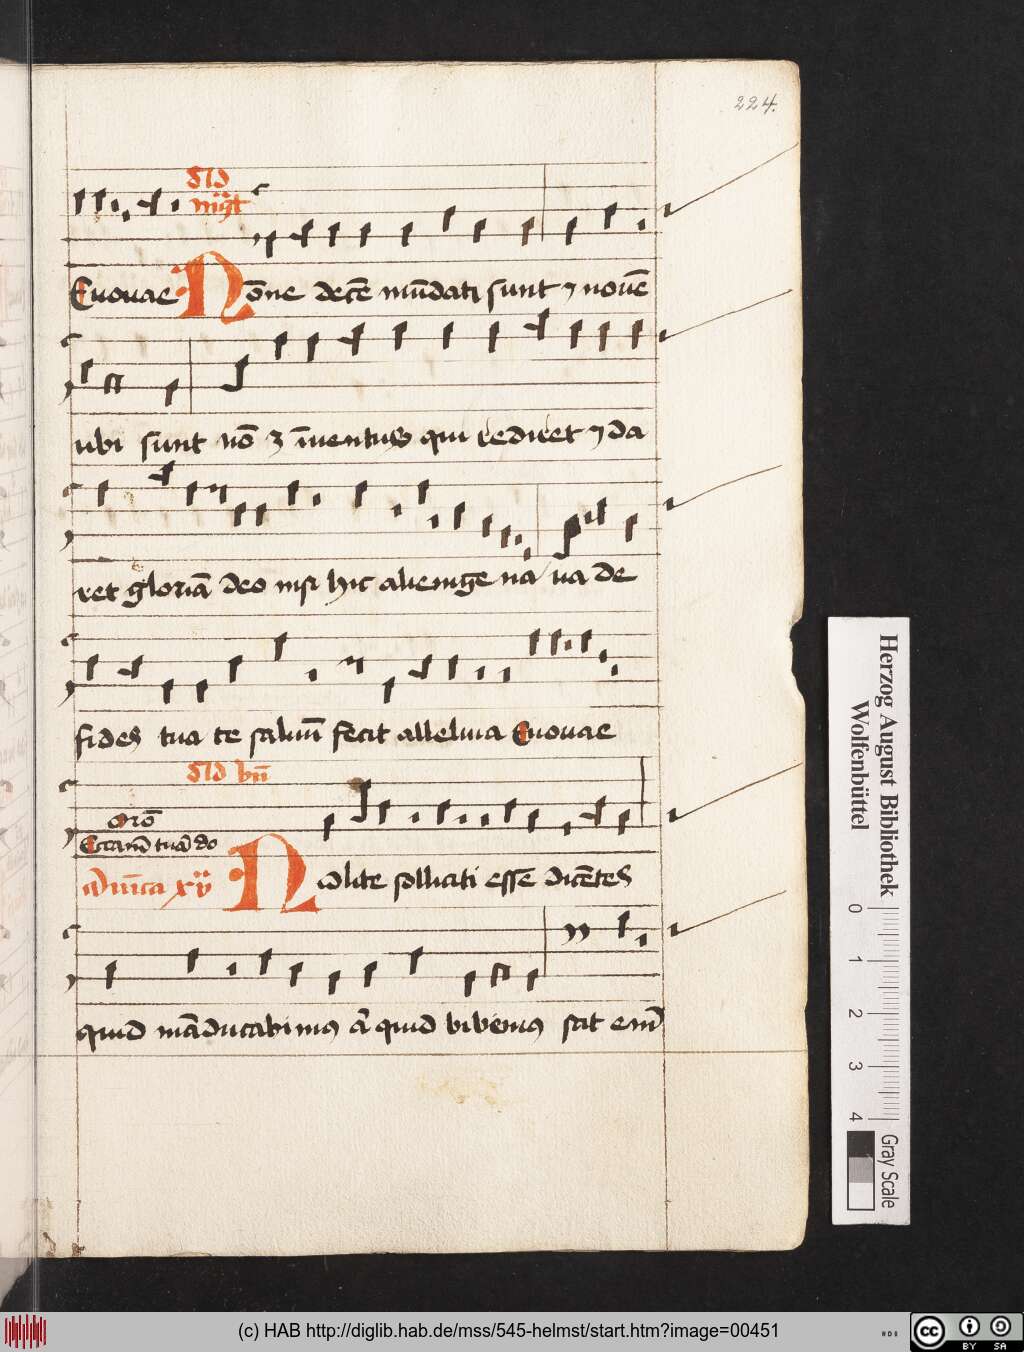 224.
Euouae Nōne decē mūdati sunt ⁊ nouē
ubi sunt nō ē inuentus qui rediret ⁊ da
ret gloriā deo nisi hic alienige na ua de
fides tua te saluū fecit alleluia Euouae
orō
Ecclam̄ tuā do
Dnīca xv Nolite solliciti esse dicētes
quid māducabimus a͡ quid bibemus scit em̄
Herzog August Bibliothek
Wolfenbüttel
0 1 2 3 4
Gray Scale
(c) HAB http://diglib.hab.de/mss/545-helmst/start.htm?image=00451
cc BY SA